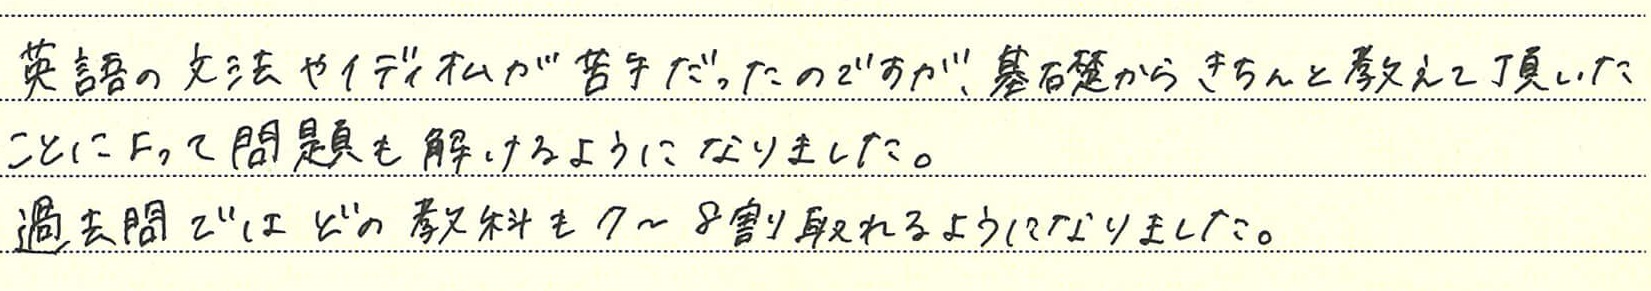 英語の文法やイディオムが苦手だったのですが、基礎からきちんと教えて頂いた
ことによって問題も解けるようになりました。
過去問ではどの教科も7～8割取れるようになりました。